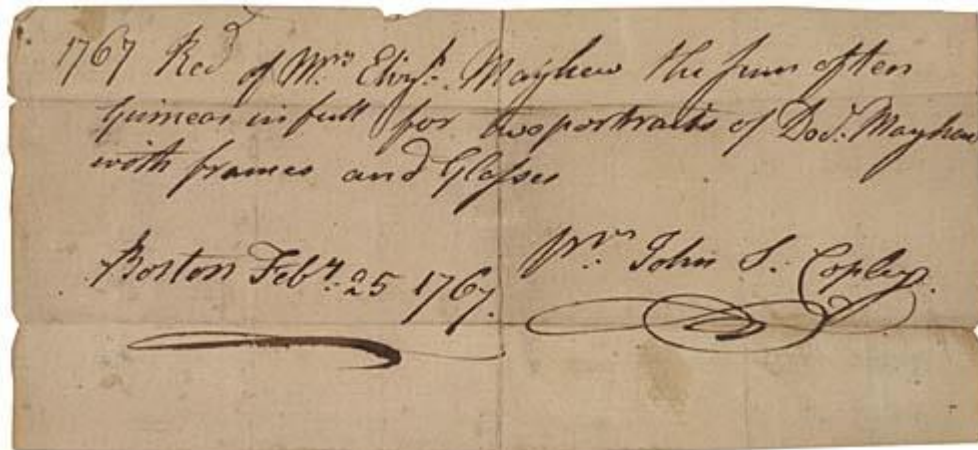 1767 Recd of Mrs Elizh. Mayhew the sum of ten
Guineas in full for two portraits of Docr. Mayhew
with frames and Glasses
Boston Feby. 25 1767.
John S. Copley.